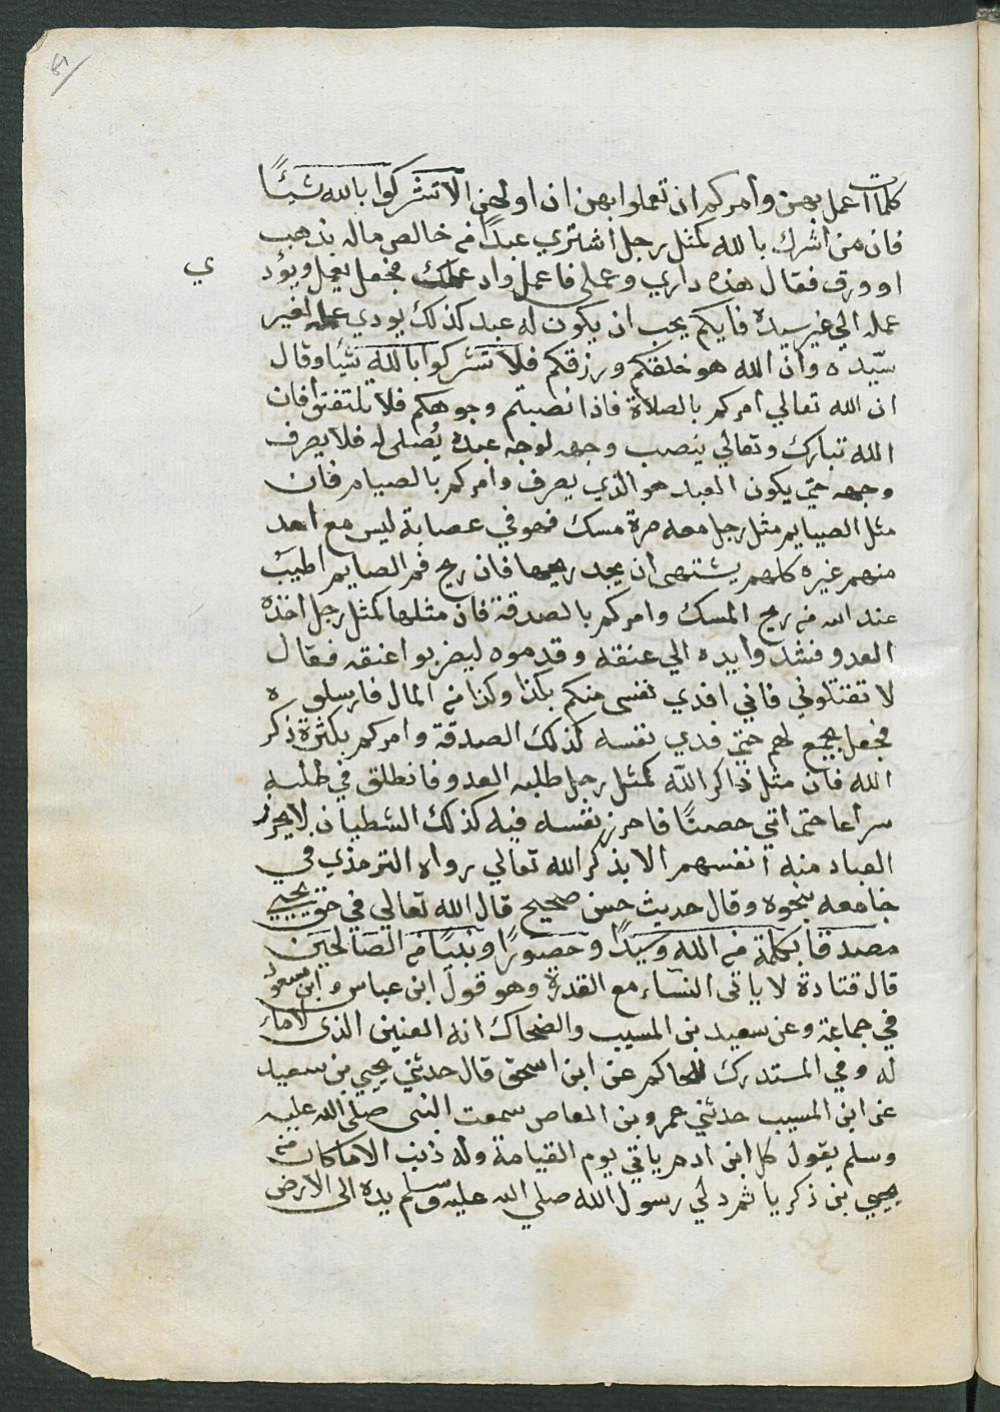 كلمات اعمل بهن وامركم ان تعملوا بهن ان اولهن الا تشركوا بالله شيئًا
فان من اشرك بالله كمثل رجل اشتري عبدًا من خالص ماله بذهب
او ورق فقال هذه داري وعملي فاعمل واد عملك فجعل يعمل ويؤد
ي
عمله الي غير سيده فايكم يحب ان يكون له عبد كذلك يودي عمله لغير
سيّده وان الله هو خلقكم ورزقكم فلا تشركوا بالله شيًا وقال
ان الله تعالي امركم بالصلاة فاذا نصبتم وجوهكم فلا تلتفتوا فان
الله تبارك وتعالي ينصب وجهه لوجه عبده يُصلي له فلا يصرف
وجهه حتي يكون العبد هو الذي يصرف وامركم بالصيام فان
مثل الصيايم مثل رجل معه صرة مسك فهو في عصابة ليس مع احد
منهم غيره كلهم يشتهى ان يجد ريحها فان ريح فم الصايم اطيب
عند الله من ريح المسك وامركم بالصدقة فان مثلها كمثل رجل اخذه
العدو فشدوا يده الي عنقه وقدموه ليضربوا عنقه فقال
لا تقتلوني فاني افدي نفسى منكم بكذا وكذا من المال فارسلوه
فجعل يجمع لهم حتي فدي نفسه كذلك الصدقة وامركم بكثرة ذكر
الله فان مثل ذاكر الله كمثل رجل طلبه العدو فانطلق في طلبه
سراعا حتى اتي حصنًا فاحرز نفسه فيه كذلك الشطيان لا يحرز
العباد منه انفسهم الا بذكر الله تعالي رواه الترمذي في
جامعه بنحوه وقال حديث حسن صحيح قال الله تعالي في حق يحيي
مصدقا بكلمة من الله وسيدًا وحصورًا ونبيًا من الصالحين
قال قتادة لا ياتى النساء مع القدرة وهو قول ابن عباس وابن مسعود
في جماعة وعن سعيد بن المسيب والضحاك انه العنين الذى لا ماء
له وفي المستدرك للحاكم عن ابن اسحق قال حدثني يحيي بن سعيد
عن ابن المسيب حدثني عمرو بن العاص سمعت النبى صلي الله عليه
وسلم يقول كل ابن ادم ياتي يوم القيامة وله ذنب الا ما كان من
يحيي بن ذكريا ثم دلي رسول الله صلي الله عليه وسلم يده الى الارض